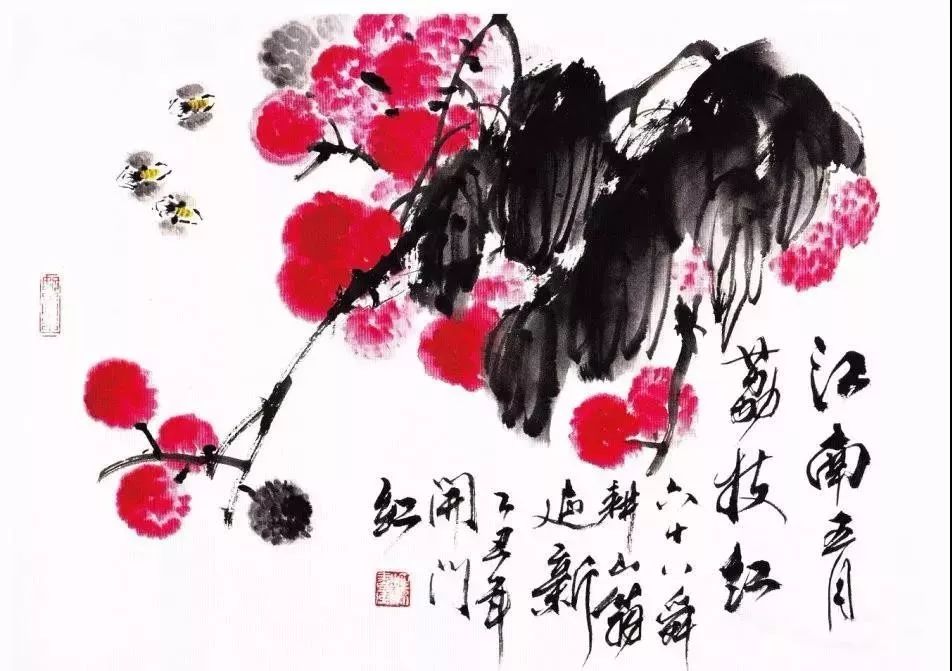 江南五月
荔枝红
六十八舜
耕山翁
迎新
丑年
開门
红